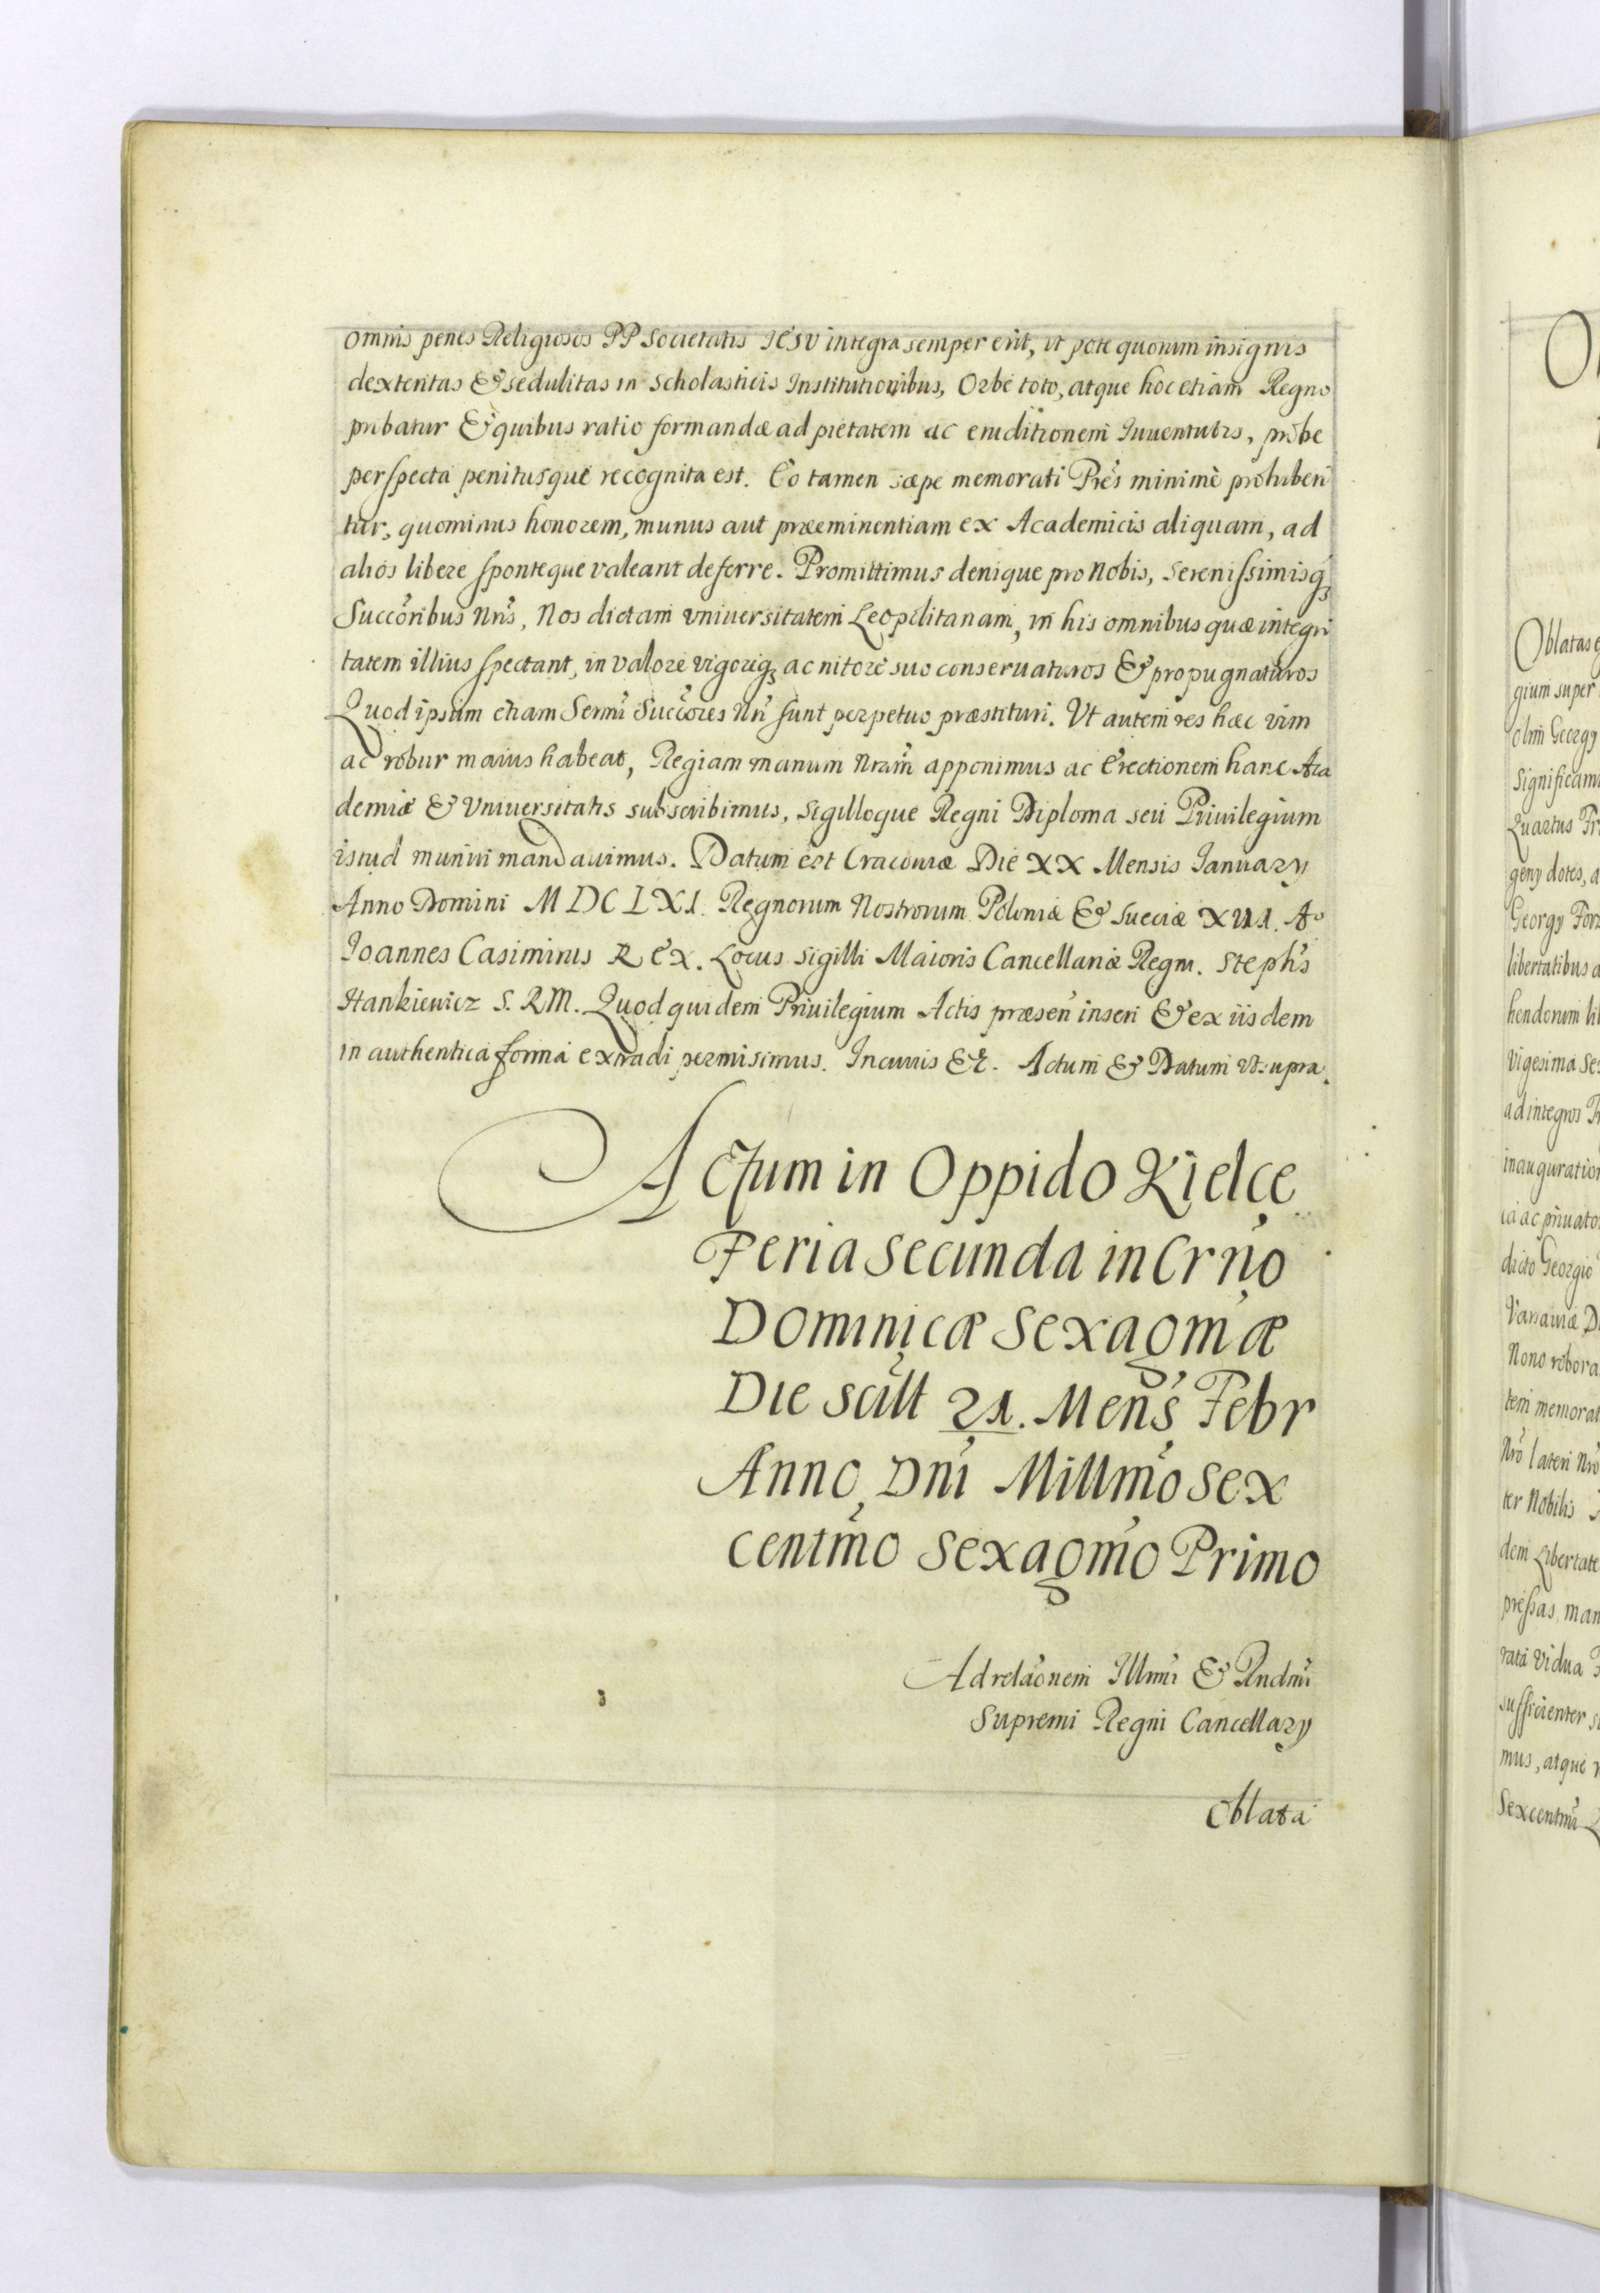 omnis penes Religiosos PP Societatis IESV integra semper erit, ut pote quorum insignis
dexteritas & sedulitas in scholasticis Institutionibus, Orbe toto, atque hoc etiam Regno
probatur & quibus ratio formandæ ad pietatem ac eruditionem Iuuentutis, probe
perspecta penitusque recognita est. Eo tamen sæpe memorati Pres minimè prohiben
tur, quominus honorem, munus aut præeminentiam ex Academicis aliquam, ad
alios libere sponteque valeant deferre. Promittimus denique pro Nobis, Serenissimisq
Succoribus Nris, Nos dictam vniuersitatem Leopolitanam, in his omnibus quæ integri
tatem illius spectant, in valore vigoriq ac nitore suo conseruaturos & propugnaturos
Quod ipsum etiam Sermi Succores Nri sunt perpetuo præstituri. Vt autem res hæc vim
ac robur maius habeat, Regiam manum Nram apponimus ac Erectionem hanc Aca
demiæ & Vniuersitatis subscribimus, sigilloque Regni Diploma seu Priuilegium
istud muniri mandauimus. Datum est Cracouiæ Die XX Mensis Ianuary
Anno Domini MDCLXI. Regnorum Nostrorum Poloniæ & Sueciæ XIII. Ao
Ioannes Casimirus REX. Locus Sigilli Maioris Cancellariæ Regni. Stephs
Hankiewicz S. R.M. Quod quidem Priuilegium Actis præsen inseri & ex iisdem
in authentica forma extradi permisimus. In cuius &c. Actum & Datum vt supra.
Actum in Oppido Kielce
Feria Secunda in Crno
Dominicæ Sexagmæ
Die scilt 21. Mens Febr
Anno Dni Millmo sex
centmo sexagmo Primo
Ad relaonem Illmi & Rndmi
Supremi Regni Cancellary
Oblata
Oblatas
gium super
olim Georgy
Significam
Quartus
geny dotes, a
Georgy
libertatibus a
hendorum
Vigesima
ad integros
inauguration
ia ac priuato
dicto Georgio
Varsauiæ D
Nono robora
tem memorat
Nro lateri Nro
ter Nobilis
dem Libertate
pressas, man
rata Vidua
sufficienter
mus, atque
Sexcentmi